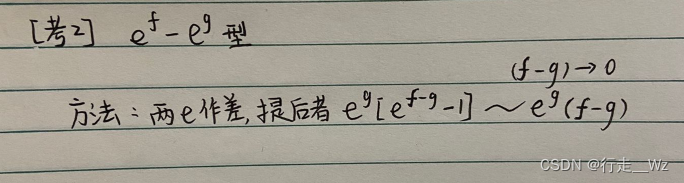 [考2] e^f - e^g 型
(f-g)→0
方法：两e作差,提后者 e^g[e^{f-g}-1] ~ e^g(f-g)
CSDN @行走__Wz